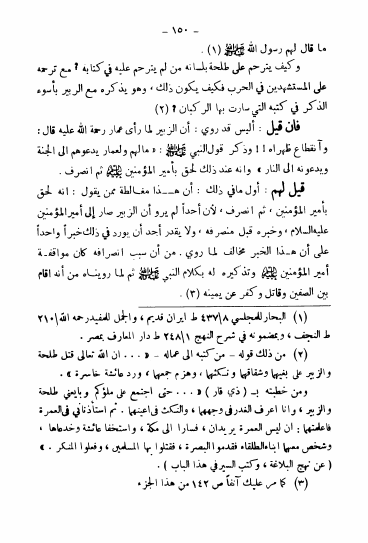 - ١٥٠ -
ما قال لهم رسول الله ﷺ (١) .
وكيف يترحم على طلحة بلسانه من لم يترحم عليه في كتابه ؟ مع ترحمه
على المستشهدين في الحرب فكيف يكون ذلك ، وهو يذكره مع الزبير بأسوء
الذكر في كتبه التي سارت بها الركبان ؟ (٢)
فان قيل : أليس قد روي : أن الزبير لما رأى عمار رحمة الله عليه قال :
وانقطاع ظهراه !! وذكر قول النبي ﷺ : « مالهم ولعمار يدعوهم الى الجنة
ويدعونه الى النار » وانه عند ذلك لحق بأمير المؤمنين ﷺ ثم انصرف .
قيل لهم : أول مافي ذلك : أن هـذا مغالطة ممن يقول : انه لحق
بأمير المؤمنين ، ثم انصرف ، لأن أحداً لم يرو أن الزبير صار إلى أمير المؤمنين
عليه السلام ، وخبره قبل منصرفه ، ولا يقدر أحد أن يورد في ذلك خبراً واحداً
على أن هـذا الخبر مخالف لما روي . من أن سبب انصرافه كان مواقفـة
أمير المؤمنين ﷺ وتذكيره له بكلام النبي ﷺ ثم لما رويناه من أنه اقام
بين الصفين وقاتل وكفر عن يمينه (٣) .
(١) البحار للمجلسي ٤٣٧/٨ ط ايران قديم ، والجمل للمفيد رحمه الله/٢١٠
ط النجف ، وبمضمونه في شرح النهج ٢٤٨/١ ط دار المعارف بمصر .
(٢) من ذلك قوله - من كتبه الى عماله - « ... ان الله تعالى قتل طلحة
والزبير على بغيهما وشقاقهما ونكثهما ، وهزم جمعهما ، ورد عائشة خاسرة »
ومن خطبته بـ (ذي قار) « ... حتى اجتمع علي ملؤكم وبايعني طلحة
والزبير ، وانا اعرف الغدر في وجههما ، والنكث في اعينهما . ثم استأذناني في العمرة
فاعلمتهما : ان ليس العمرة يريدان ، فسارا الى مكة ، واستخفا عائشة وخدعاها ،
وشخص معهما ابناء الطلقاء فقدموا البصرة ، فقتلوا بها المسلمين ، وفعلوا المنكر . »
( عن نهج البلاغة ، وكتب السير في هذا الباب ) .
(٣) كما مر عليك آنفاً ص ١٤٢ من هذا الجزء